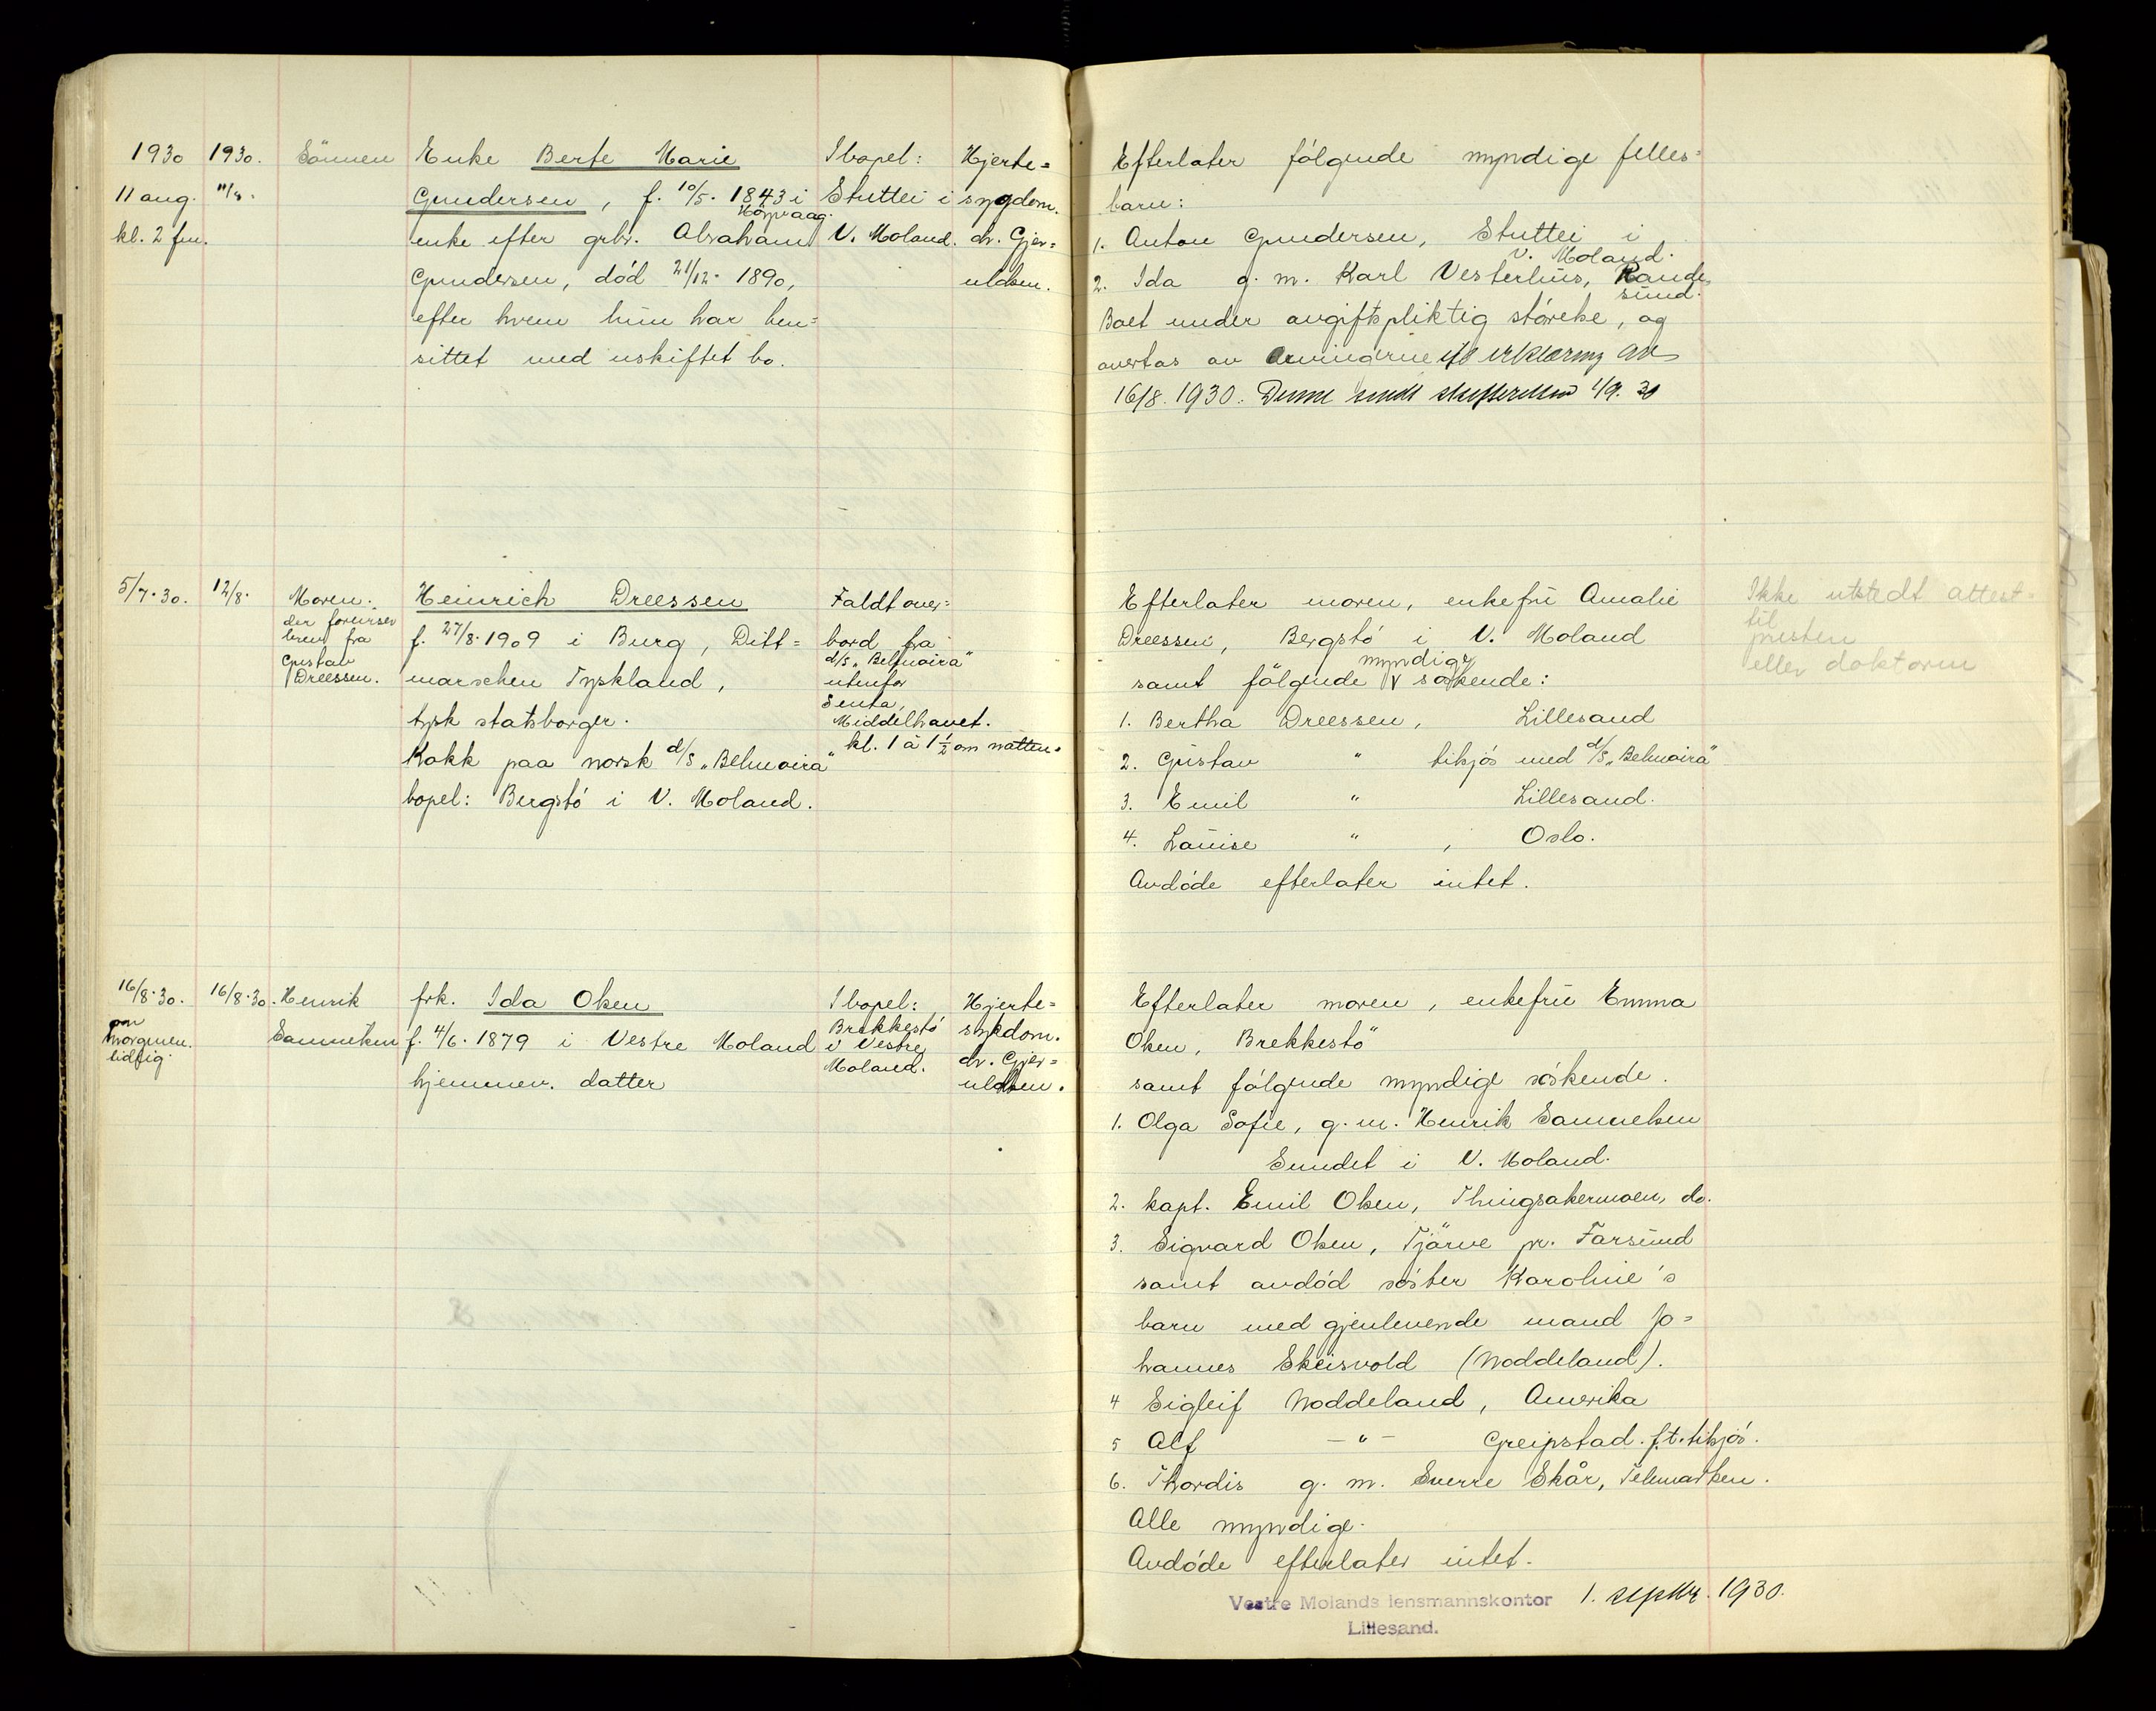 1930
11 aug.
kl. 2 fm.
1930.
11/8.
Sönnen
Enke Berte Marie
Gundersen, f. 10/5. 1843 i
Høyvaag.
enke efter grbr. Abraham
Gundersen, död 21/12. 1890,
efter hvem hun har hen=
sittet med uskiftet bo.
I bopel:
Stuttei i
V. Moland.
Hjerte=
sygdom.
dr. Gjer=
uldsen.
Efterlater følgende myndige felles=
barn:
1. Anton Gundersen, Stuttei i
V. Moland.
2. Ida g. m. Karl Vesterhus, Rande=
sund.
Boet under avgiftspliktig størelse, og
overtas av arvingerne ifl erklæring av
16/8. 1930. Denne sendt skifteretten 1/9. 30
5/7. 30.
12/8.
Moren.
der foreviser
brev fra
Gustav
Dreessen.
Heinrich Dreessen
f. 27/8. 1909 i Burg, Ditt=
marschen Tyskland,
tysk statsborger.
Kokk paa norsk d/s „Belmoira"
bopel: Bergstö i V. Moland.
Faldt over=
bord fra
d/s „Belmoira"
utenfor
Seuta,
Middelhavet.
kl. 1 à 1 1/2 om natten.
Efterlater moren, enkefru Amalie
Dreessen, Bergstö i V. Moland
myndige
samt følgende V søskende:
1. Bertha Dreessen, Lillesand
2. Gustav " tilsjøs med d/s „Belmoira"
3. Emil " Lillesand.
4. Louise " , Oslo.
Avdøde efterlater intet.
Ikke utstedt attest=
til
presten
eller doktoren
16/8. 30.
om
morgenen.
lidfig.
16/8. 30.
Henrik
Samuelsen
frk. Ida Olsen
f. 4/6. 1879 i Vestre Moland
hjemmev. datter
I bopel:
Brekkestö
i Vestre
Moland.
Hjerte=
sykdom.
dr. Gjer=
uldsen.
Efterlater moren, enkefru Emma
Olsen, Brekkestö
samt følgende myndige søskende.
1. Olga Sofie, g. m. Henrik Samuelsen
Sundet i V. Moland.
2. kapt. Emil Olsen, Thingsakermoen, do.
3. Sigvard Olsen, Tjörve pr. Farsund
samt avdöd søster Karoline's
barn med gjenlevende mand Jo=
hannes Skeisvold (Noddeland).
4 Sigleif Noddeland, Amerika
5 Alf — " — Greipstad. f.t. tilsjøs.
6. Thordis g. m. Sverre Skår, Telemarken.
Alle myndige.
Avdøde efterlater intet.
Vestre Molands lensmannskontor 1. septbr. 1930.
Lillesand.